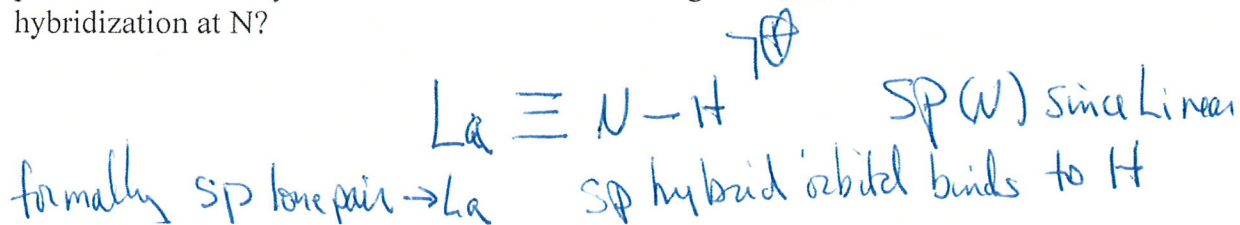 hybridization at N?
La ≡ N – H ⁊⊕ SP(N) since Linear
formally sp lone pair → La sp hybrid orbital binds to H